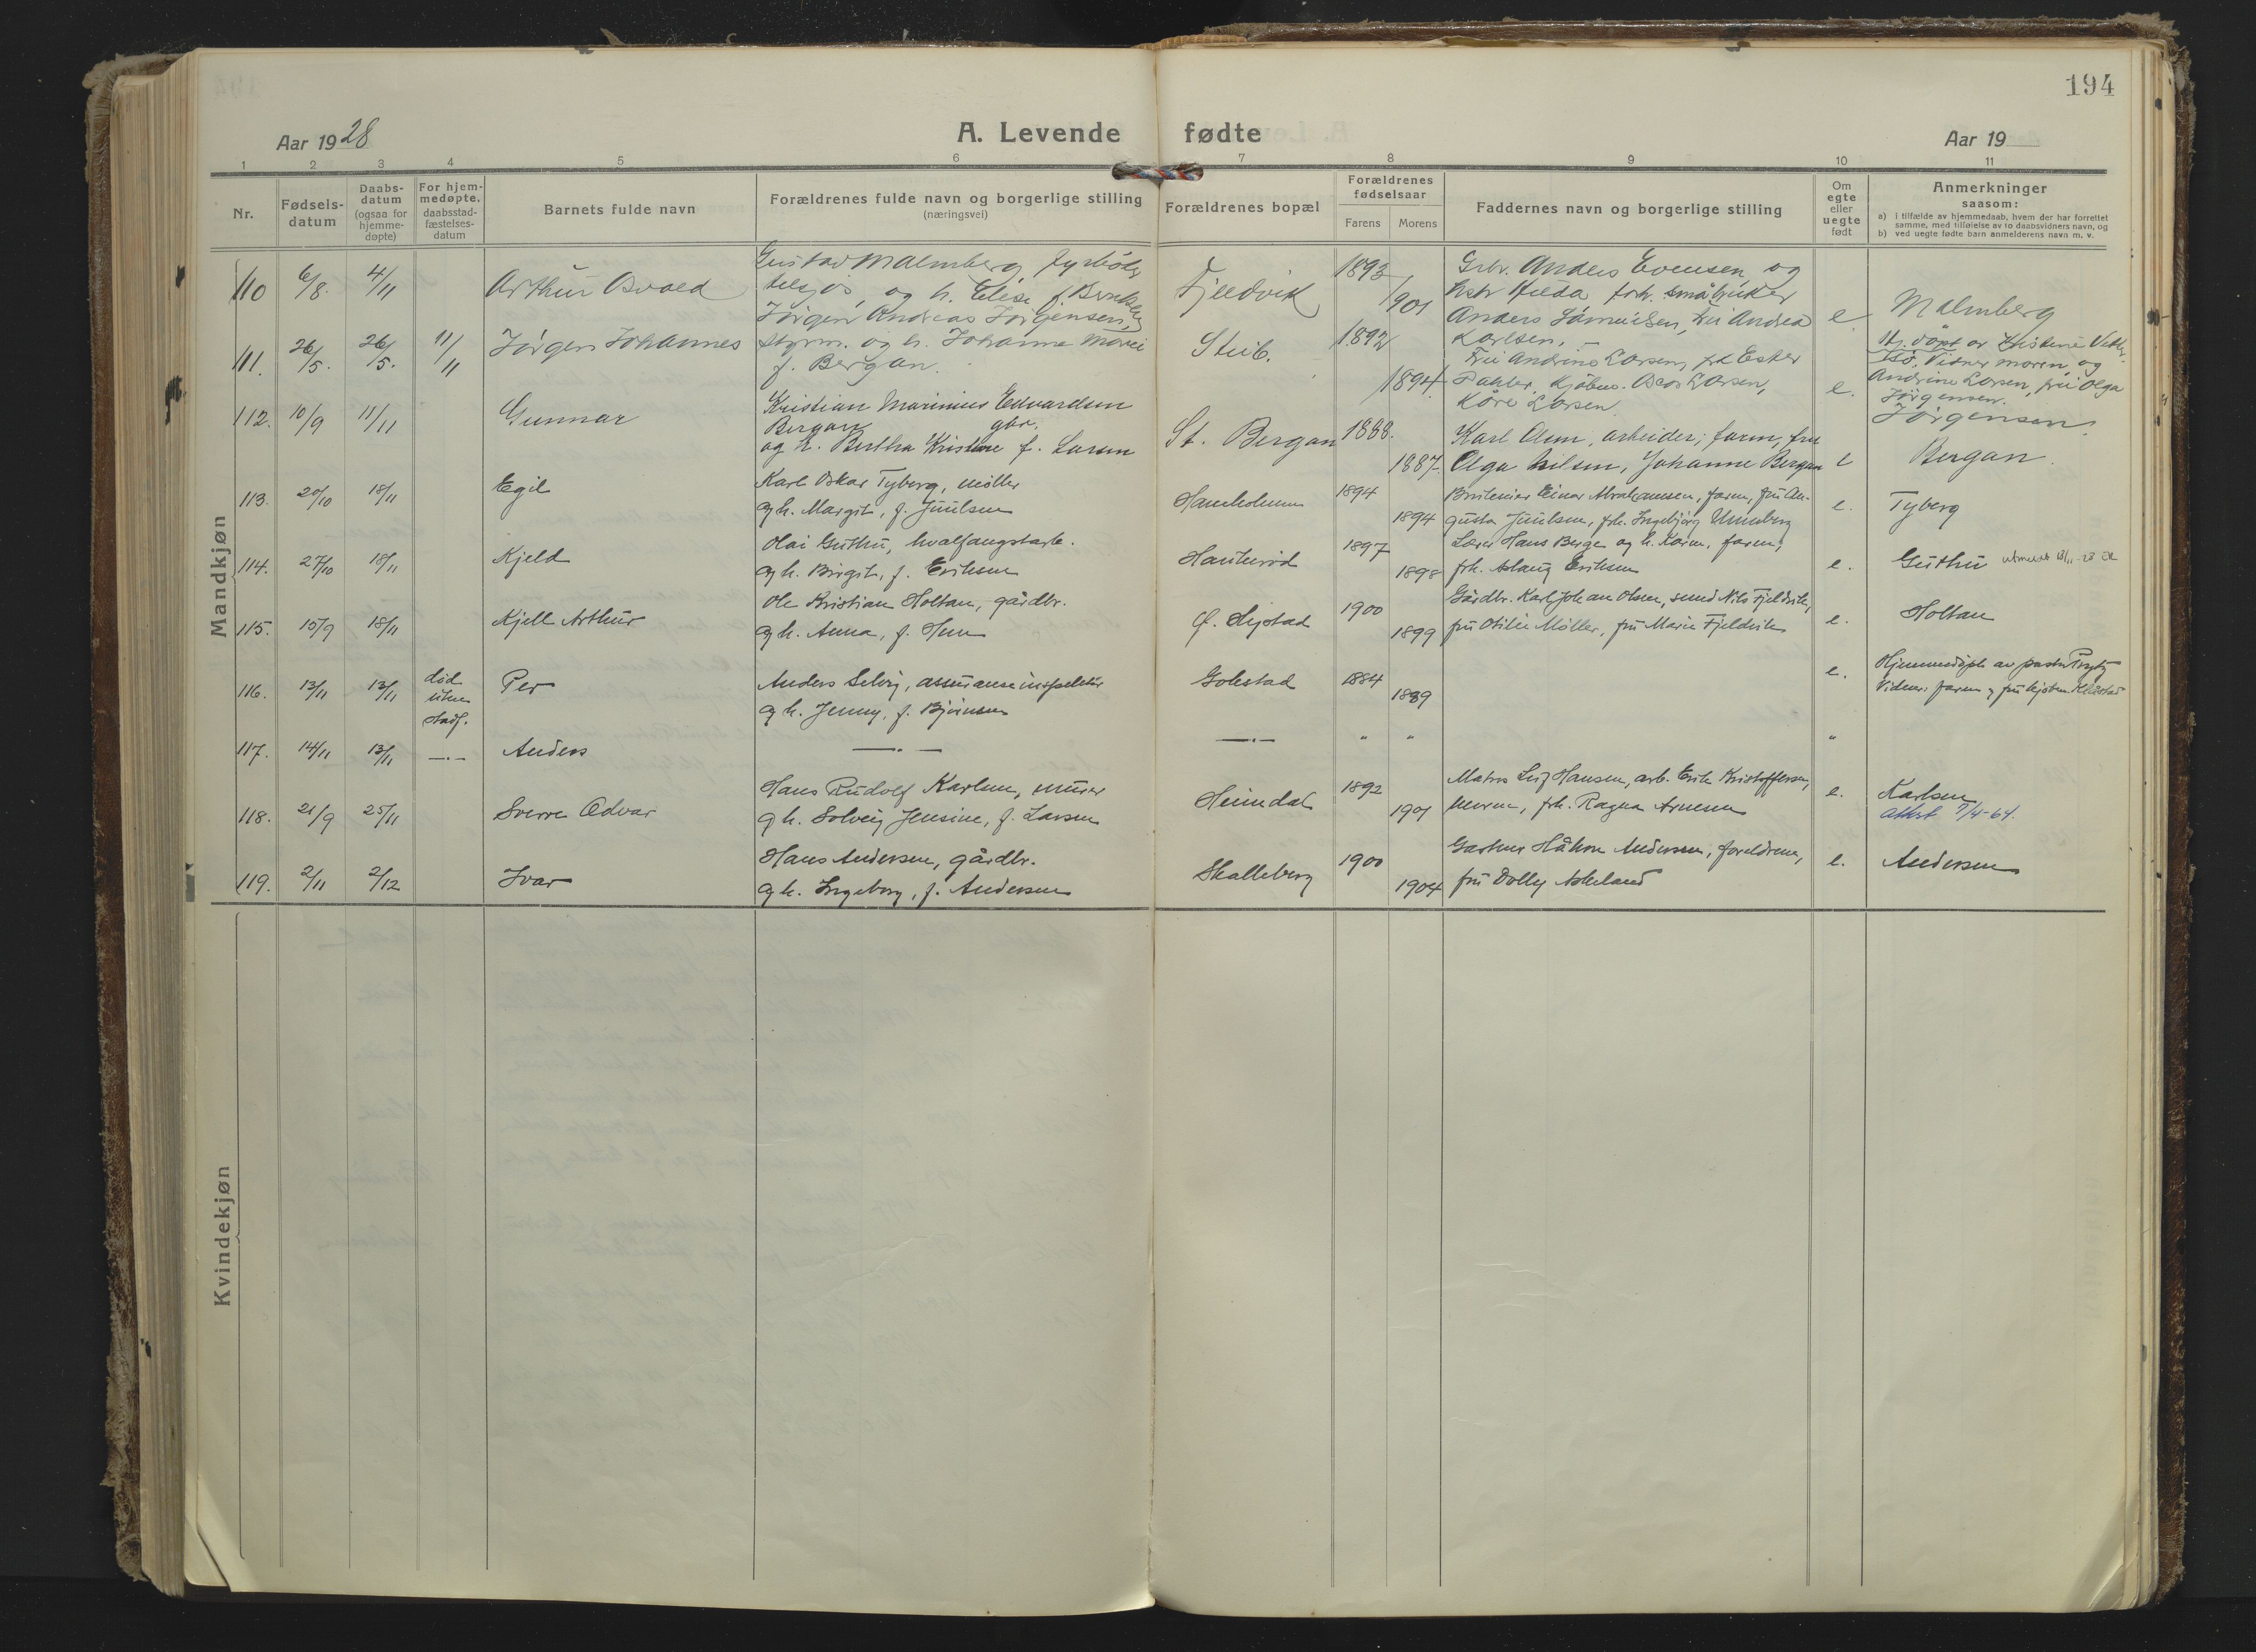 194
Aar 1928
A. Levende fødte
Aar 19
1 2 3 4 5 6 7 8 9 10 11
Nr.
Fødsels-
datum
Daabs-
datum
(ogsaa for
hjemme-
døpte)
For hjem-
medøpte.
daabsstad-
fæstelses-
datum
Barnets fulde navn
Forældrenes fulde navn og borgerlige stilling
(næringsvei)
Forældrenes bopæl
Forældrenes
fødselsaar
Farens Morens
Faddernes navn og borgerlige stilling
Om
egte
eller
uegte
født
Anmerkninger
saasom:
a) i tilfælde av hjemmedaab, hvem der har forrettet
samme, med tilføielse av to daabsvidners navn, og
b) ved uegte fødte barn anmelderens navn m. v.
Mandkjøn
110 6/8. 4/11 Arthur Osvald
Gustav Malmberg, fyrbøter
tilsjøs, og h. Elise f.
Fjeldvik
1893
1901
Grbr. Anders Evensen og
Hilda småbruker
Anders Samuelsen, Fru Andrea
Karlsen,
e
Malmberg
111. 26/5. 26/5. 11/11 Jörgen Johannes
Jörgen Andreas Jörgensen,
styrm. og h. Johanne Marie
f. Bergan.
Stub.
1892
1894.
Fru Andrine Larsen, Ester
Kjøbm. Larsen,
Kåre Larsen.
e.
Hj. döpt av Kristine
Vidner moren og
Andrine Larsen, fru Olga
Jörgensen.
Jörgensen.
112. 10/9 11/11 Gunnar
Kristian Marinius Edvardsen
Bergan gbr.
og h. Bertha Kristine f. Larsen
St. Bergan
1888.
1887.
Karl Olsen, arbeider; faren, fru
Olga Nilsen, Johanne Bergan
e
Bergan.
113. 20/10 18/11 Egil
Karl Oskar Tyberg, møller
og h. Margit, f. Juulsen
1894
1894
Einar Abrahamsen, faren, fru Au-
gusta Juulsen, frk. Ingebjörg Unneberg
e.
Tyberg
114. 27/10 18/11 Kjeld
Olai Guthu, hvalfangstarb.
og h. Birgit, f. Eriksen
Haukerød
1897
1898
Lærer Hans Berge og h. Karen, faren,
frk. Aslaug Eriksen
e.
Guthu
115. 15/9 18/11 Kjell Arthur
Ole Kristian Holtan, gårdbr.
og h. Anna, f. Hem
Ø. Hystad
1900
1899
Gårdbr. Karl Johan Olsen, smed Nils Fjeldvik,
fru Otilie Møller, fru Marie Fjeldvik
e.
Holtan
116. 13/11 13/11 død
uten
stadf.
Per
Anders Selvig, assuranseinspektør
og h. Jenny, f. Bjørnsen
Gokstad
1884
1889
e.
Hjemmedöpt av pastor
Vidner: faren og fru
117. 14/11 13/11 —.— Anders
—.—
—.—
" "
"
118. 21/9 25/11 Sverre Odvar
Hans Rudolf Karlsen, murer
og h. Solveig Jensine, f. Larsen
Heimdal
1892
1901
Matros Leif Hansen, arb. Erik Kristoffersen,
moren, frk. Ragna Arnesen
e.
Karlsen
attest 7/4-64.
119. 2/11 2/12 Ivar
Hans Andersen, gårdbr.
og h. Ingeborg, f. Andersen
Skalleberg
1900
1904
Gartner Håkon Andersen, foreldrene,
fru Dolly Askeland
e.
Andersen
Kvindekjøn